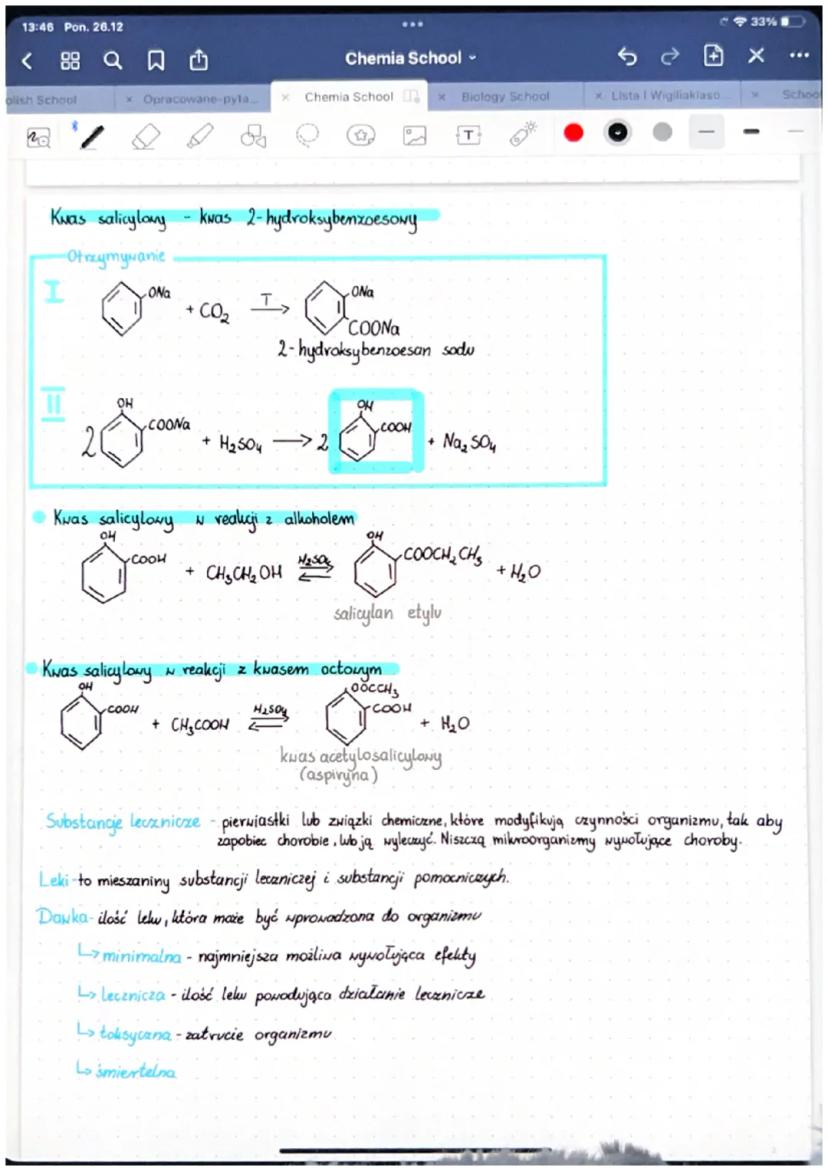 13:46 Pon. 26.12
33%
Chemia School
olish School
× Opracowane-pyta...
× Chemia School
× Biology School
× Lista | Wigiliaklaso...
× School
T
Kwas salicylowy - kwas 2-hydroksybenzoesowy
Otrzymywanie
I
ONa + CO₂ T → ONa COONa
2-hydroksybenzoesan sodu
II
2 OH COONa + H₂SO₄ → 2 OH COOH + Na₂SO₄
Kwas salicylowy w reakcji z alkoholem
OH COOH + CH₃CH₂OH H₂SO₄ ⇌ OH COOCH₂CH₃ + H₂O
salicylan etylu
Kwas salicylowy w reakcji z kwasem octowym
OH COOH + CH₃COOH H₂SO₄ ⇌ OOCCH₃ COOH + H₂O
kwas acetylosalicylowy
(aspiryna)
Substancje lecznicze - pierwiastki lub związki chemiczne, które modyfikują czynności organizmu, tak aby
zapobiec chorobie, lub ją wyleczyć. Niszczą mikroorganizmy wywołujące choroby.
Leki - to mieszaniny substancji leczniczej i substancji pomocniczych.
Dawka - ilość leku, która może być wprowadzona do organizmu
↳ minimalna - najmniejsza możliwa wywołująca efekty
↳ lecznicza - ilość leku powodująca działanie lecznicze
↳ toksyczna - zatrucie organizmu
↳ śmiertelna